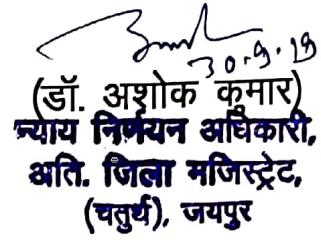 30.9.19
(डॉ. अशोक कुमार)
न्याय निर्णयन अधिकारी,
अति. जिला मजिस्ट्रेट,
(चतुर्थ), जयपुर